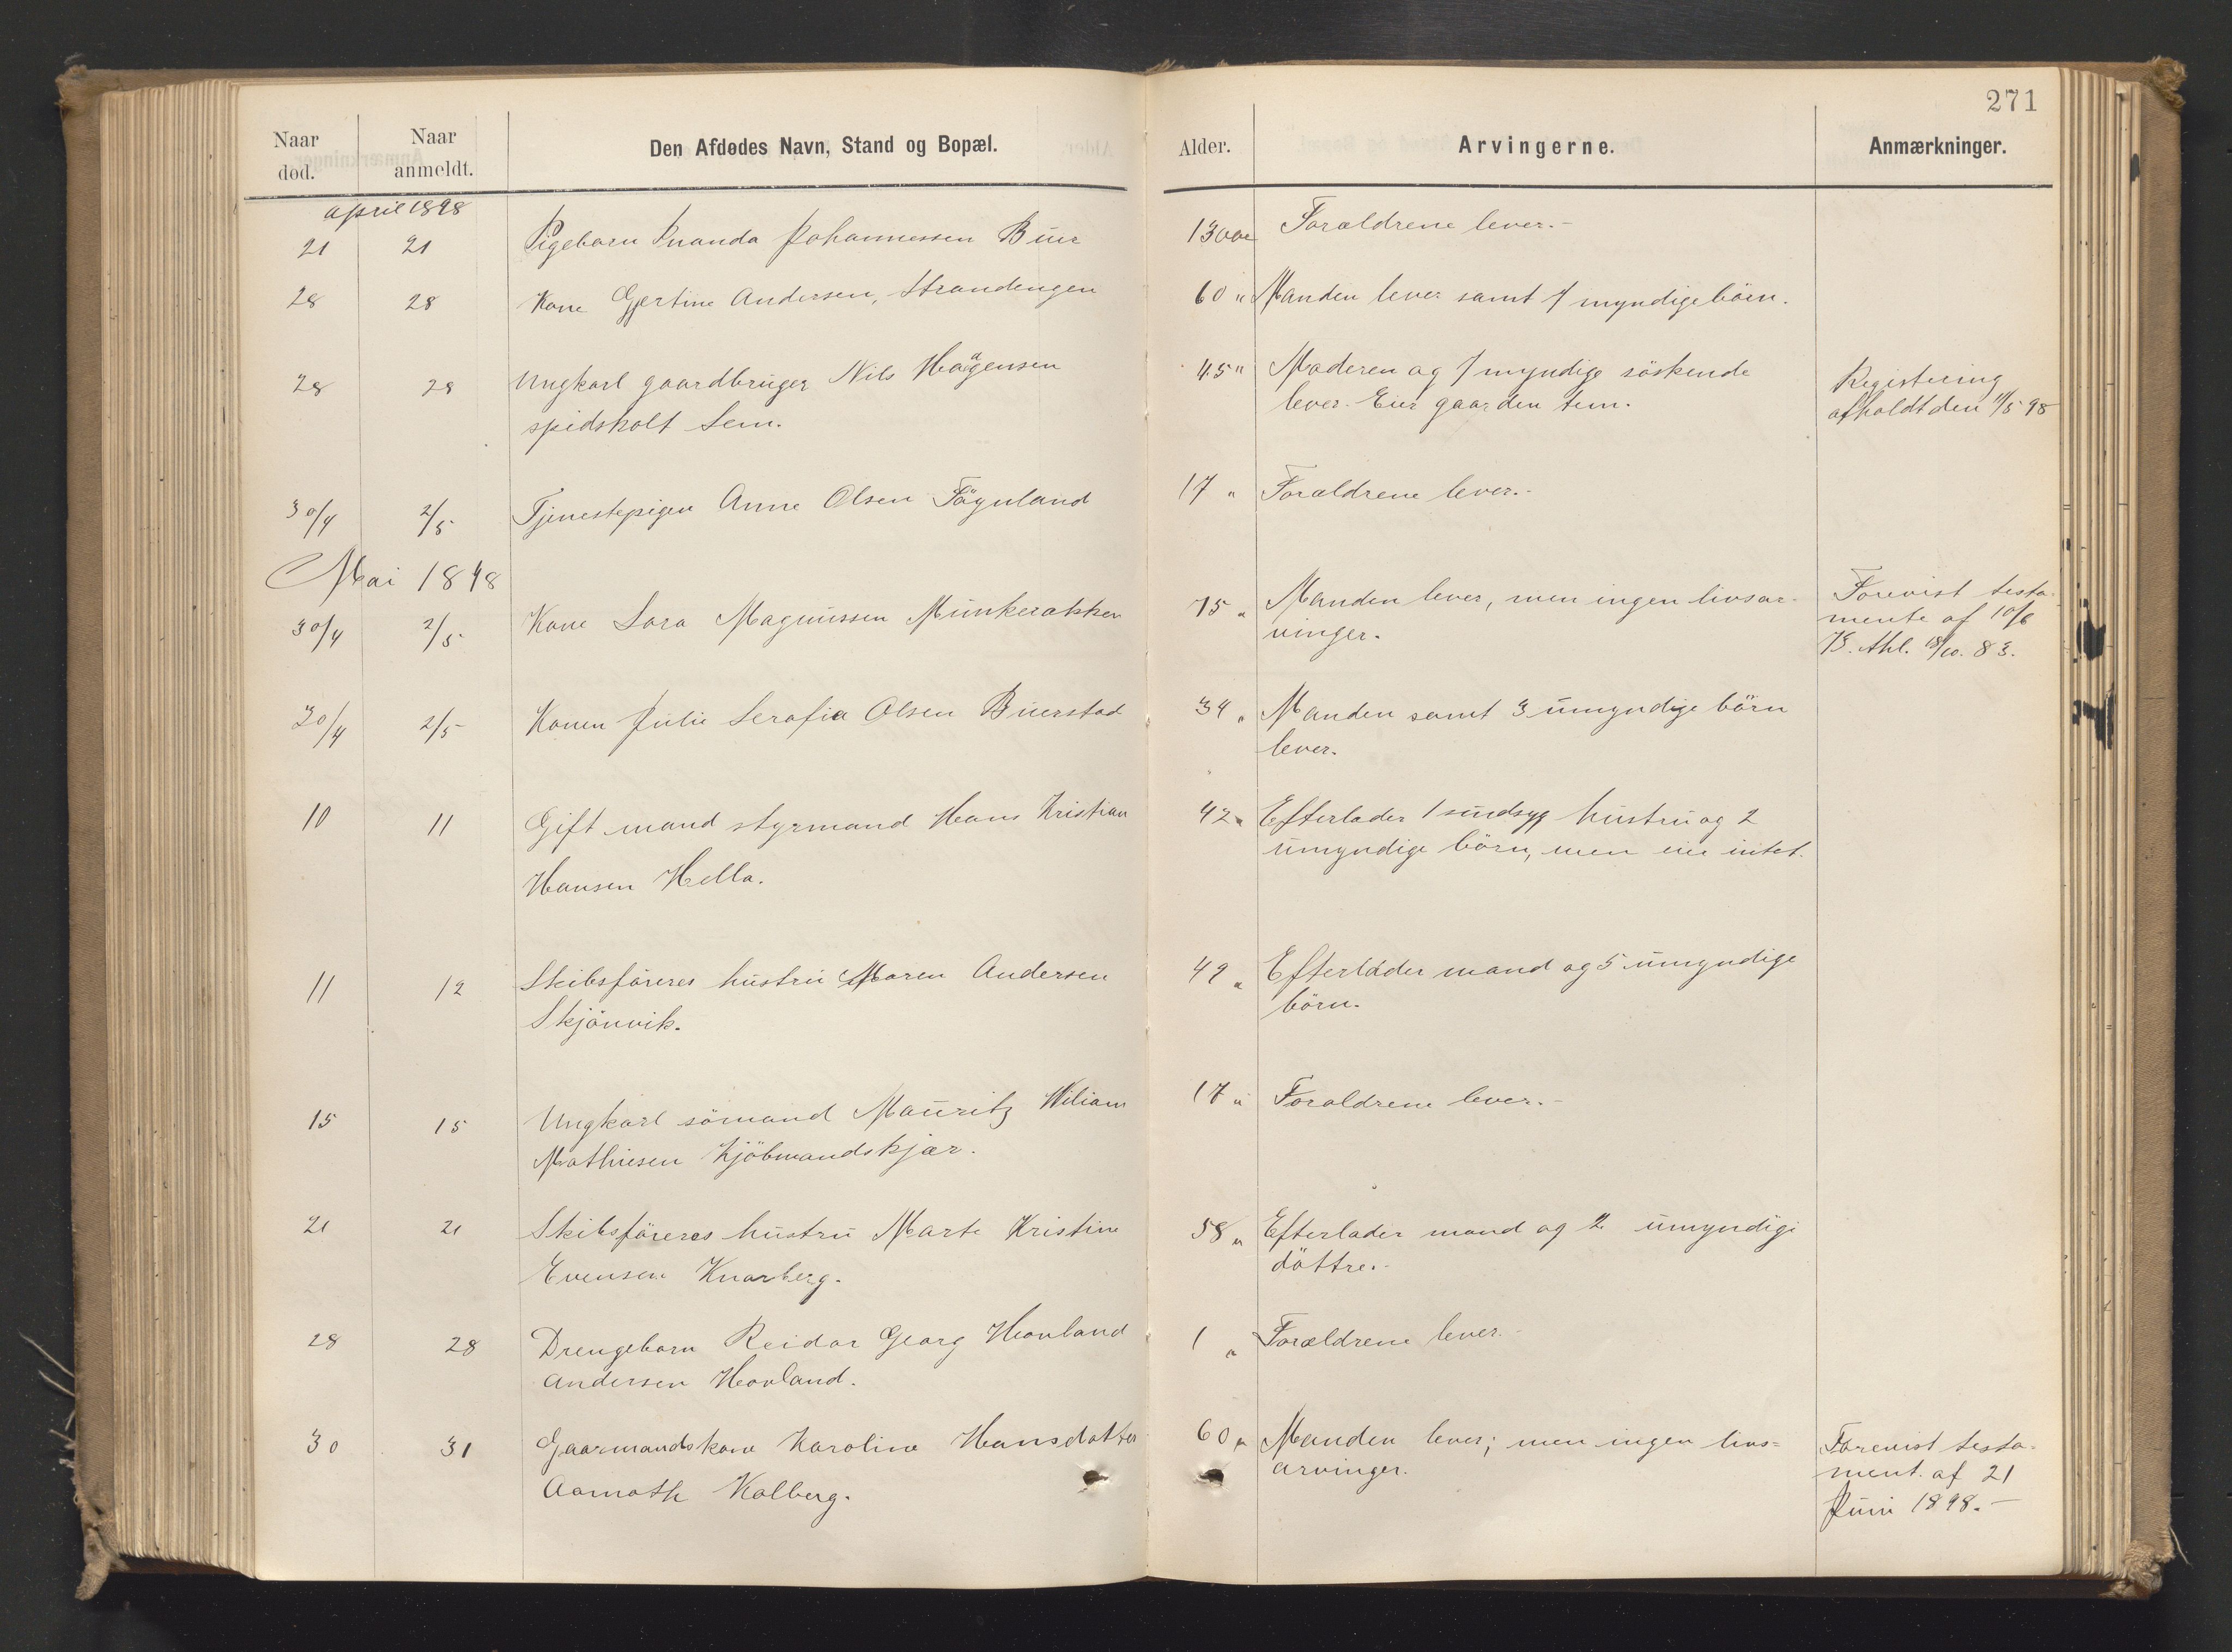 271
Naar død.
Naar anmeldt.
Den Afdødes Navn, Stand og Bopæl.
Alder.
Arvingerne.
Anmærkninger.
april 1898
21 21 Pigebarn Johannessen Buer 13 Forældrene lever.-
28 28 Kone Gjertine Andersen, Strandengen 60 " Manden lever samt 7 myndige börn.
28 28 Ungkarl gaardbruger Nils Haagensen 45 " Moderen og 7 myndige söskende Registrering
spidsholt Sem. lever. Eier gaarden tem. afholdt den 11/5 98
30/4 2/5 Tjenestepigen Anne Olsen Föynland 17 " Forældrene lever.-
Mai 1898
30/4 2/5 Kone Lara Magnussen Munkerakken 75 " Manden lever, men ingen livsar- Forevist testa-
vinger. mente af 10/6
73. thl. 18/10. 83.
30/4 2/5 Konen Julie Serafia Olsen Buerstad 34 " Manden samt 3 umyndige börn
lever.
10 11 Gift mand styrmand Hans Kristian 42 " Efterlader 1 sindsyg hustru og 2
Hansen Hella. umyndige börn, men eier intet.
11 12 Skibsföreres hustru Maren Andersen 49 " Efterlader mand og 5 umyndige
Skjönvik. börn.
15 15 Ungkarl sömand Mauritz Wiliam 17 " Forældrene lever.-
Mathiesen Kjöbmandskjær.
21 21 Skibsföreres hustru Marte Kristine 58 " Efterlader mand og 2 umyndige
Evensen Knarberg. döttre.-
28 28 Drengebarn Reidar Georg Hovland 1 " Forældrene lever.-
Andersen Hovland.
30 31 Gaarmandskone Karoline Hansdatter 60 " Manden lever; men ingen livs= Forevist testa-
Aamoth Kolberg. arvinger. ment. af 21
Juni 1898.-